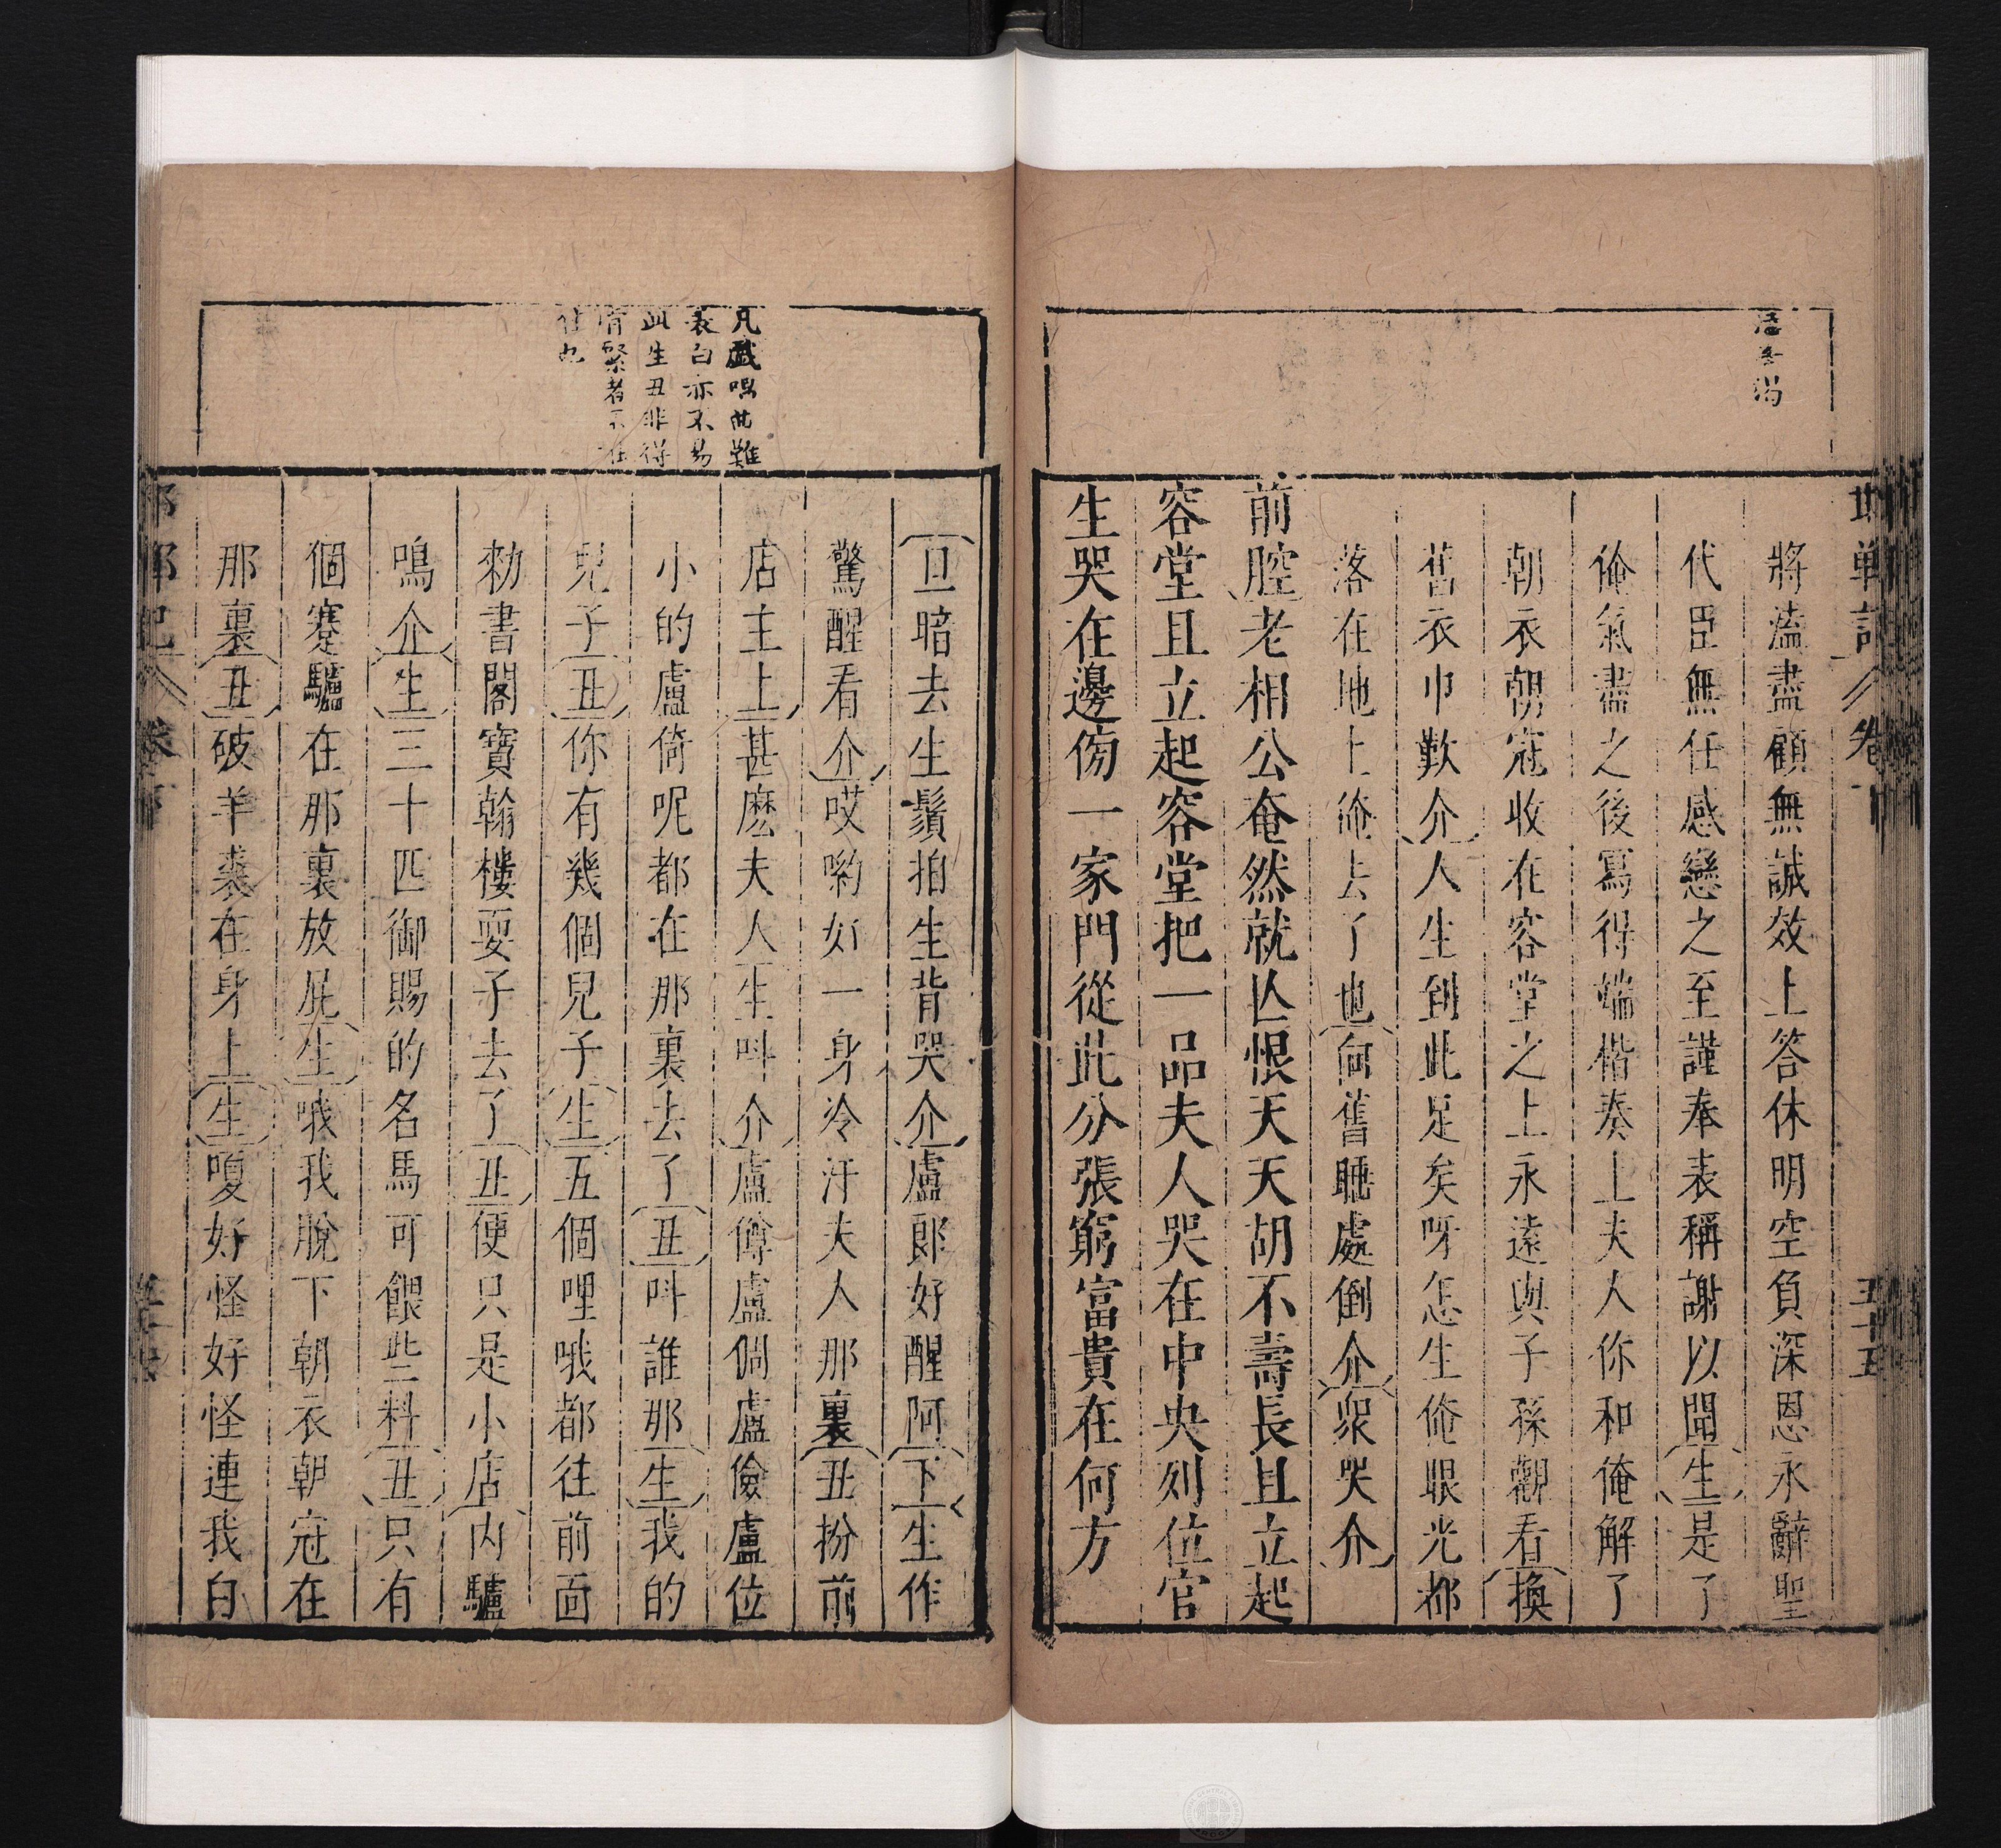 邯鄲記
卷下
五十五
將溘盡顧無誠效上答休明空負深恩永辭聖
代臣無任感戀之至謹奉表稱謝以聞生是了
俺氣盡之後寫得端楷奏上夫人你和俺解了
朝衣朝冠收在容堂之上永遠與子孫觀看換
舊衣巾歎介人生到此足矣呀怎生俺眼光都
落在地上俺去了也向舊睡處倒介衆哭介
前腔老相公奄然就亾恨天天天胡不壽長且立起
容堂且立起容堂把一品夫人哭在中央列位官
生哭在邊傍一家門從此分張窮富貴在何方
凡戲唱曲難
表白亦不易
此生丑非得
有緊者不
旦暗去生鬚拍生背哭介盧郎好醒阿下生作
驚醒看介哎喲好一身冷汗夫人那裏丑扮前
店主上甚麽夫人生呌介盧傅盧倜盧儉盧位
小的盧倚呢都在那裏去了丑呌誰那生我的
兒子丑你有幾個兒子生五個哩哦都往前面
勑書閣寶翰樓耍子去了丑便只是小店內驢
鳴介生三十匹御賜的名馬可餵些料丑只有
個蹇驢在那裏放屁生哦我脫下朝衣朝冠在
那裏丑破羊裘在身上生嗄好怪好怪連我白